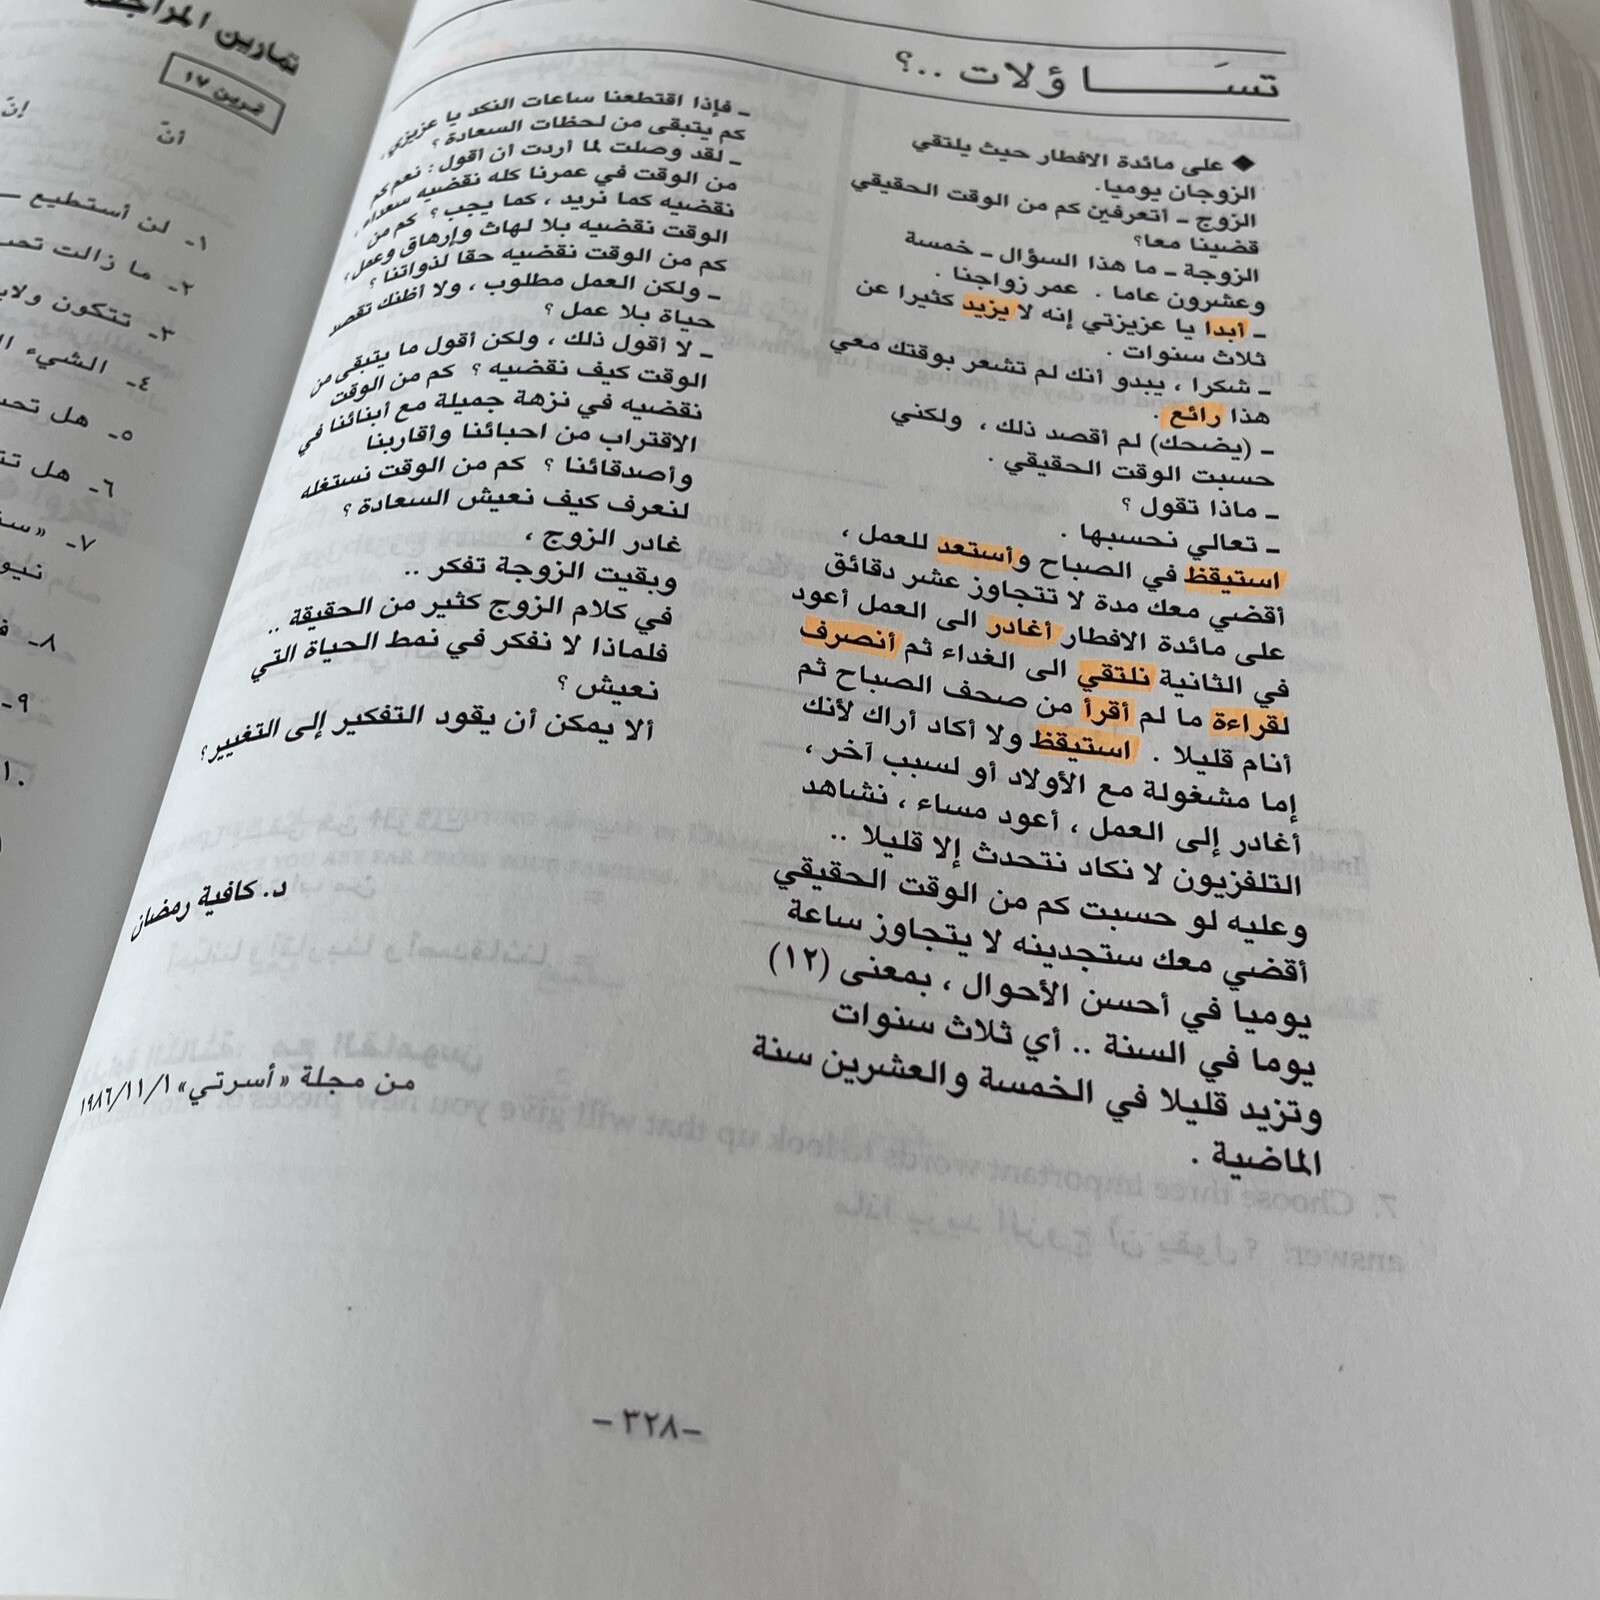 تساؤلات ..؟
◆ على مائدة الافطار حيث يلتقي
الزوجان يوميا.
الزوج ـ أتعرفين كم من الوقت الحقيقي
قضينا معا؟
الزوجة ـ ما هذا السؤال ـ خمسة
وعشرون عاما . عمر زواجنا .
ـ أبدا يا عزيزتي إنه لا يزيد كثيرا عن
ثلاث سنوات .
ـ شكرا ، يبدو أنك لم تشعر بوقتك معي
هذا رائع .
ـ (يضحك) لم أقصد ذلك ، ولكني
حسبت الوقت الحقيقي .
ـ ماذا تقول ؟
ـ تعالي نحسبها .
استيقظ في الصباح وأستعد للعمل ،
أقضي معك مدة لا تتجاوز عشر دقائق
على مائدة الافطار أغادر الى العمل أعود
في الثانية نلتقي الى الغداء ثم أنصرف
لقراءة ما لم أقرأ من صحف الصباح ثم
أنام قليلا . استيقظ ولا أكاد أراك لأنك
إما مشغولة مع الأولاد أو لسبب آخر ،
أغادر إلى العمل ، أعود مساء ، نشاهد
التلفزيون لا نكاد نتحدث إلا قليلا ..
وعليه لو حسبت كم من الوقت الحقيقي
أقضي معك ستجدينه لا يتجاوز ساعة
يوميا في أحسن الأحوال ، بمعنى (١٢)
يوما في السنة .. أي ثلاث سنوات
وتزيد قليلا في الخمسة والعشرين سنة
الماضية .
ـ فإذا اقتطعنا ساعات النكد يا عزيزي،
كم يتبقى من لحظات السعادة ؟
ـ لقد وصلت لما أردت أن أقول : نعم كم
من الوقت في عمرنا كله نقضيه سعداء،
نقضيه كما نريد ، كما يجب ؟ كم من
الوقت نقضيه بلا لهاث وإرهاق وعمل؟
كم من الوقت نقضيه حقا لذواتنا ؟
ـ ولكن العمل مطلوب ، ولا أظنك تقصد
حياة بلا عمل ؟
ـ لا أقول ذلك ، ولكن أقول ما يتبقى من
الوقت كيف نقضيه ؟ كم من الوقت
نقضيه في نزهة جميلة مع أبنائنا في
الاقتراب من احبائنا وأقاربنا
وأصدقائنا ؟ كم من الوقت نستغله
لنعرف كيف نعيش السعادة ؟
غادر الزوج ،
وبقيت الزوجة تفكر ..
في كلام الزوج كثير من الحقيقة ..
فلماذا لا نفكر في نمط الحياة التي
نعيش ؟
ألا يمكن أن يقود التفكير إلى التغيير؟
د. كافية رمضان
من مجلة «أسرتي» ١٩٨٦/١١/١
–٣٢٨–
تمارين المراجعة
تمرين ١٧
أنّ
إنّ
١ـ لن أستطيع
٢ـ ما زالت
٣ـ تتكون
٤ـ الشيء
٥ـ هل
٦ـ هل
٧ـ
٨ـ
٩ـ
١٠ـ